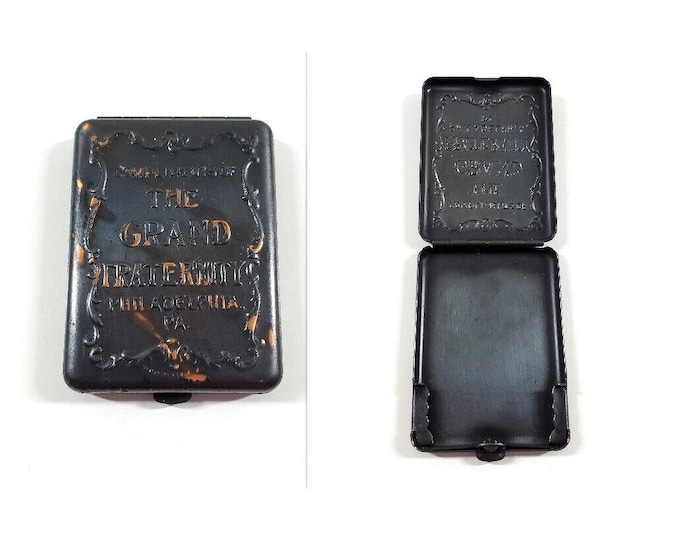 COMPLIMENTS OF
THE
GRAND
FRATERNITY
PHILADELPHIA,
PA.